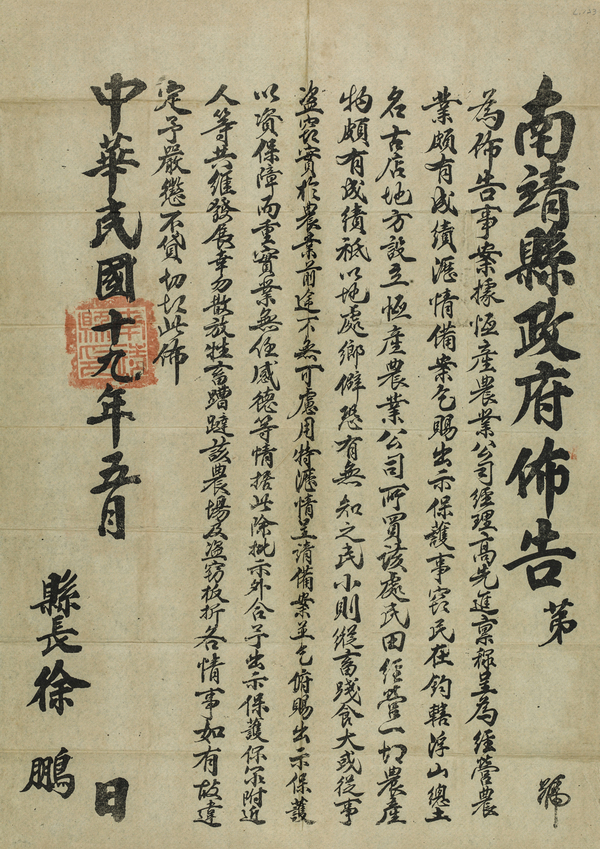 南靖縣政府佈告 第 號
為佈告事案據恒產農業公司經理高先進稟稱呈為經營農
業頗有成績瀝情備案乞賜出示保護事竊民在鈞轄浮山總土
名古店地方設立恒產農業公司所買該處民田經營一切農產
物頗有成績祗以地處鄉僻恐有無知之民小則縱畜踐食大或從事
盜竊實於農業前途不無可慮用特瀝情呈請備案並乞俯賜出示保護
以資保障而重實業無任感德等情據此除批示外合予出示保護保爾附近
人等共維發展幸勿散放牲畜蹧蹥該農場及盜竊扳折各情事如有故違
定予嚴懲不貸切切此佈
中華民國十九年五月 日
縣長徐鵬
南靖縣印